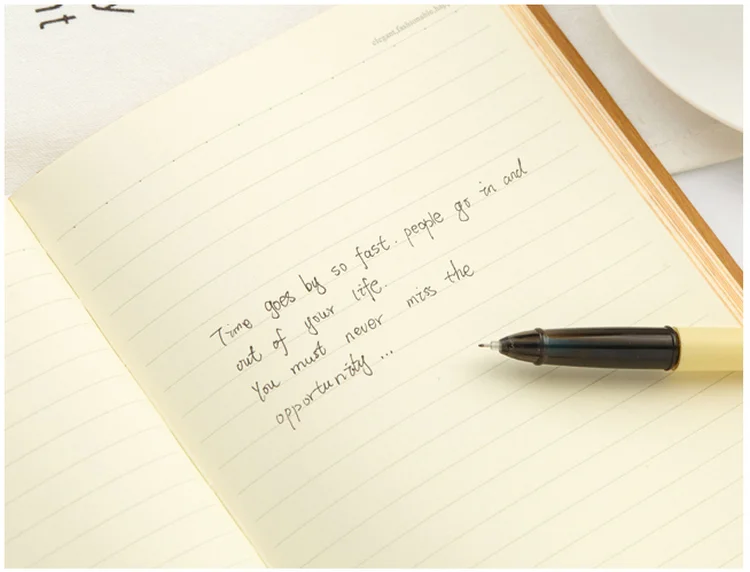 elegant.fashionable.
Time goes by so fast. people go in and
out of your life.
You must never miss the
opportunity ...